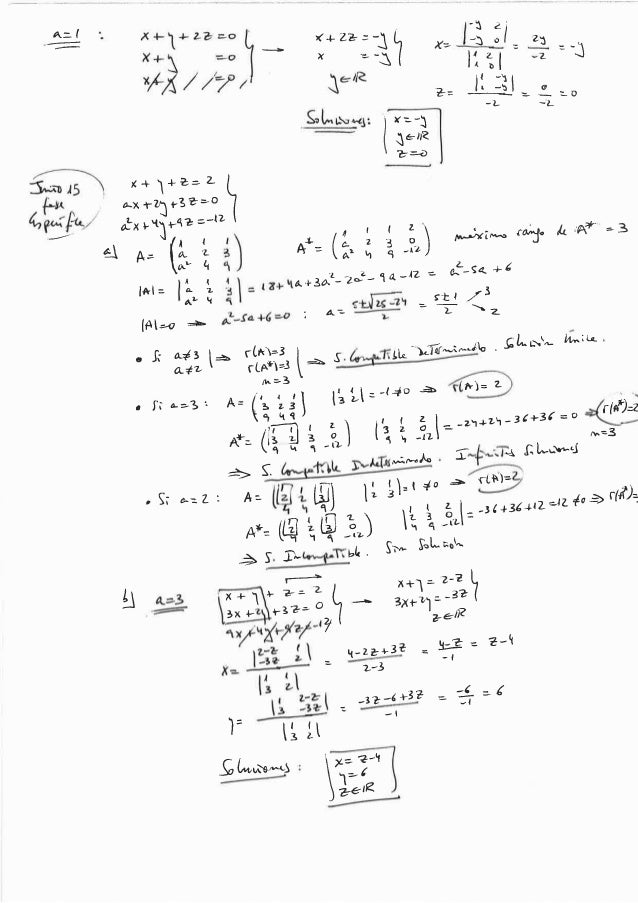 a=1 : x+y+2z=0 } → x+2z=-y } x= |-y 2; -y 0| / |1 2; 1 0| = 2y/-2 = -y
x+y =0 x =-y
x+y =0 y∈ℝ z= |1 -y; 1 -y| / -2 = 0/-2 = 0
Soluciones: x=-y
y∈ℝ
z=0
Junio 15 x+y+z=2
fase ax+2y+3z=0
Específica a²x+4y+9z=-12
a) A= (1 1 1; a 2 3; a² 4 9) A*= (1 1 1 2; a 2 3 0; a² 4 9 -12) máximo rango de A* = 3
|A|= |1 1 1; a 2 3; a² 4 9| = 18+4a+3a²-2a²-9a-12 = a²-5a+6
|A|=0 ⇒ a²-5a+6=0 : a= (5±√25-24)/2 = (5±1)/2 3 2
• Si a≠3 a≠2 | ⇒ r(A)=3 r(A*)=3 n=3 | ⇒ S. Compatible Determinado. Solución única.
• Si a=3: A= (1 1 1; 3 2 3; 9 4 9) |1 1; 3 2| = -1≠0 ⇒ r(A)=2
A*= (1 1 1 2; 3 2 3 0; 9 4 9 -12) |1 1 2; 3 2 0; 9 4 -12| = -24+24-36+36=0 ⇒ r(A*)=2
n=3
⇒ S. Compatible Indeterminado. Infinitas Soluciones
• Si a=2: A= (1 1 1; 2 2 3; 4 4 9) |1 1; 2 3|=1≠0 ⇒ r(A)=2
A*= (1 1 1 2; 2 2 3 0; 4 4 9 -12) |1 1 2; 2 3 0; 4 9 -12| = -36+36+12=12≠0 ⇒ r(A*)=
⇒ S. Incompatible. Sin Solución
b) a=3 x+y+z=2 } → x+y=2-z
3x+2y+3z=0 3x+2y=-3z
9x+4y+9z=-12 z∈ℝ
x= |2-z 1; -3z 2| / |1 1; 3 2| = 4-2z+3z / 2-3 = 4-z/-1 = z-4
y= |1 2-z; 3 -3z| / |1 1; 3 2| = -3z-6+3z / -1 = -6/-1 = 6
Soluciones: x=z-4
y=6
z∈ℝ